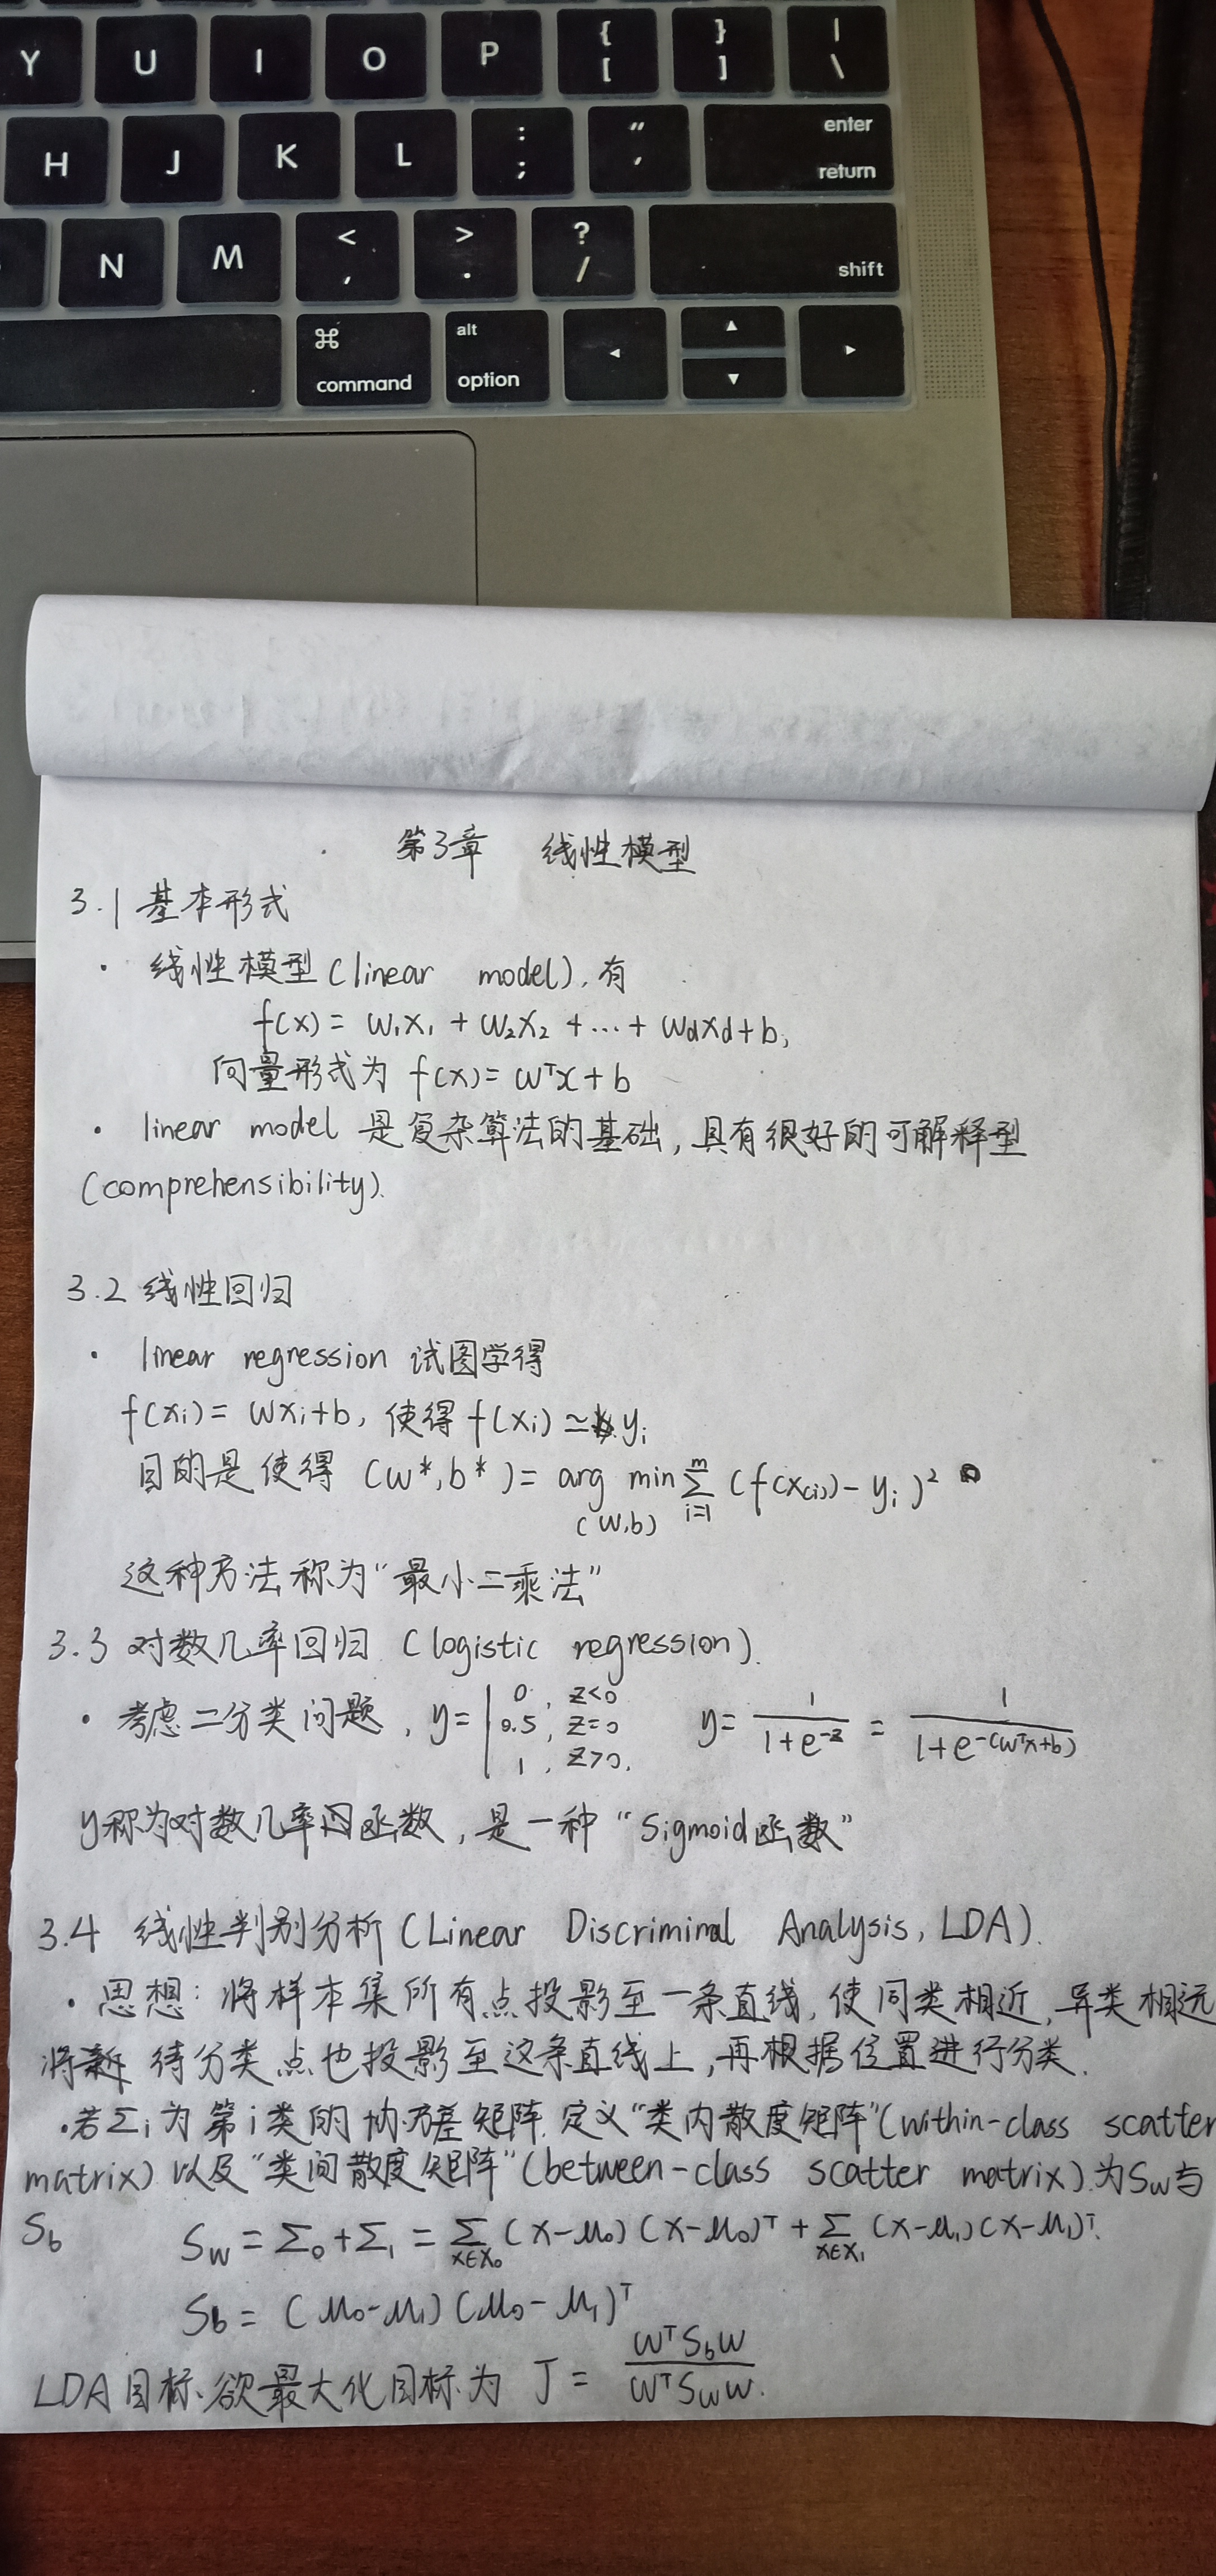 Y U I O P { [ } ] | \
H J K L : ; " ' enter return
N M < , > . ? / shift
⌘ command alt option ◂ ▴ ▾ ▸
第3章 线性模型
3.1 基本形式
· 线性模型(linear model),有
f(x) = w₁x₁ + w₂x₂ + … + w_d x_d + b,
向量形式为 f(x) = wᵀx + b
· linear model 是复杂算法的基础,具有很好的可解释型
(comprehensibility).
3.2 线性回归
· linear regression 试图学得
f(xi) = wxi+b, 使得 f(xi) ≃ yi
目的是使得 (w*, b*) = arg min_(w,b) Σ_{i=1}^{m} (f(x(i)) - yi)²
这种方法称为“最小二乘法”
3.3 对数几率回归 (logistic regression).
· 考虑二分类问题, y = | 0, z<0 0.5, z=0 1, z>0. y = 1/(1+e^{-z}) = 1/(1+e^{-(wᵀx+b)})
y称为对数几率函数,是一种“Sigmoid函数”
3.4 线性判别分析 (Linear Discriminal Analysis, LDA).
· 思想: 将样本集所有点投影至一条直线,使同类相近,异类相远
将新 待分类点也投影至这条直线上,再根据位置进行分类.
· 若Σi为第i类的协方差矩阵.定义“类内散度矩阵”(within-class scatter
matrix) 以及“类间散度矩阵”(between-class scatter matrix).为Sw与
Sb Sw = Σ₀+Σ₁ = Σ_{x∈X₀} (x-μ₀)(x-μ₀)ᵀ + Σ_{x∈X₁} (x-μ₁)(x-μ₁)ᵀ.
Sb = (μ₀-μ₁)(μ₀-μ₁)ᵀ
LDA目标、欲最大化目标为 J = wᵀSbw / wᵀSww.